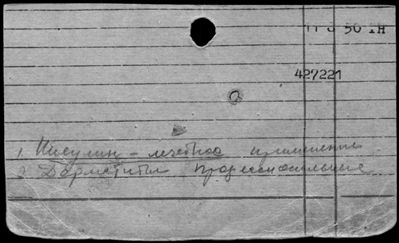 427221
1. Инсулин - лечебное применение
2. Дерматиты профессиональные